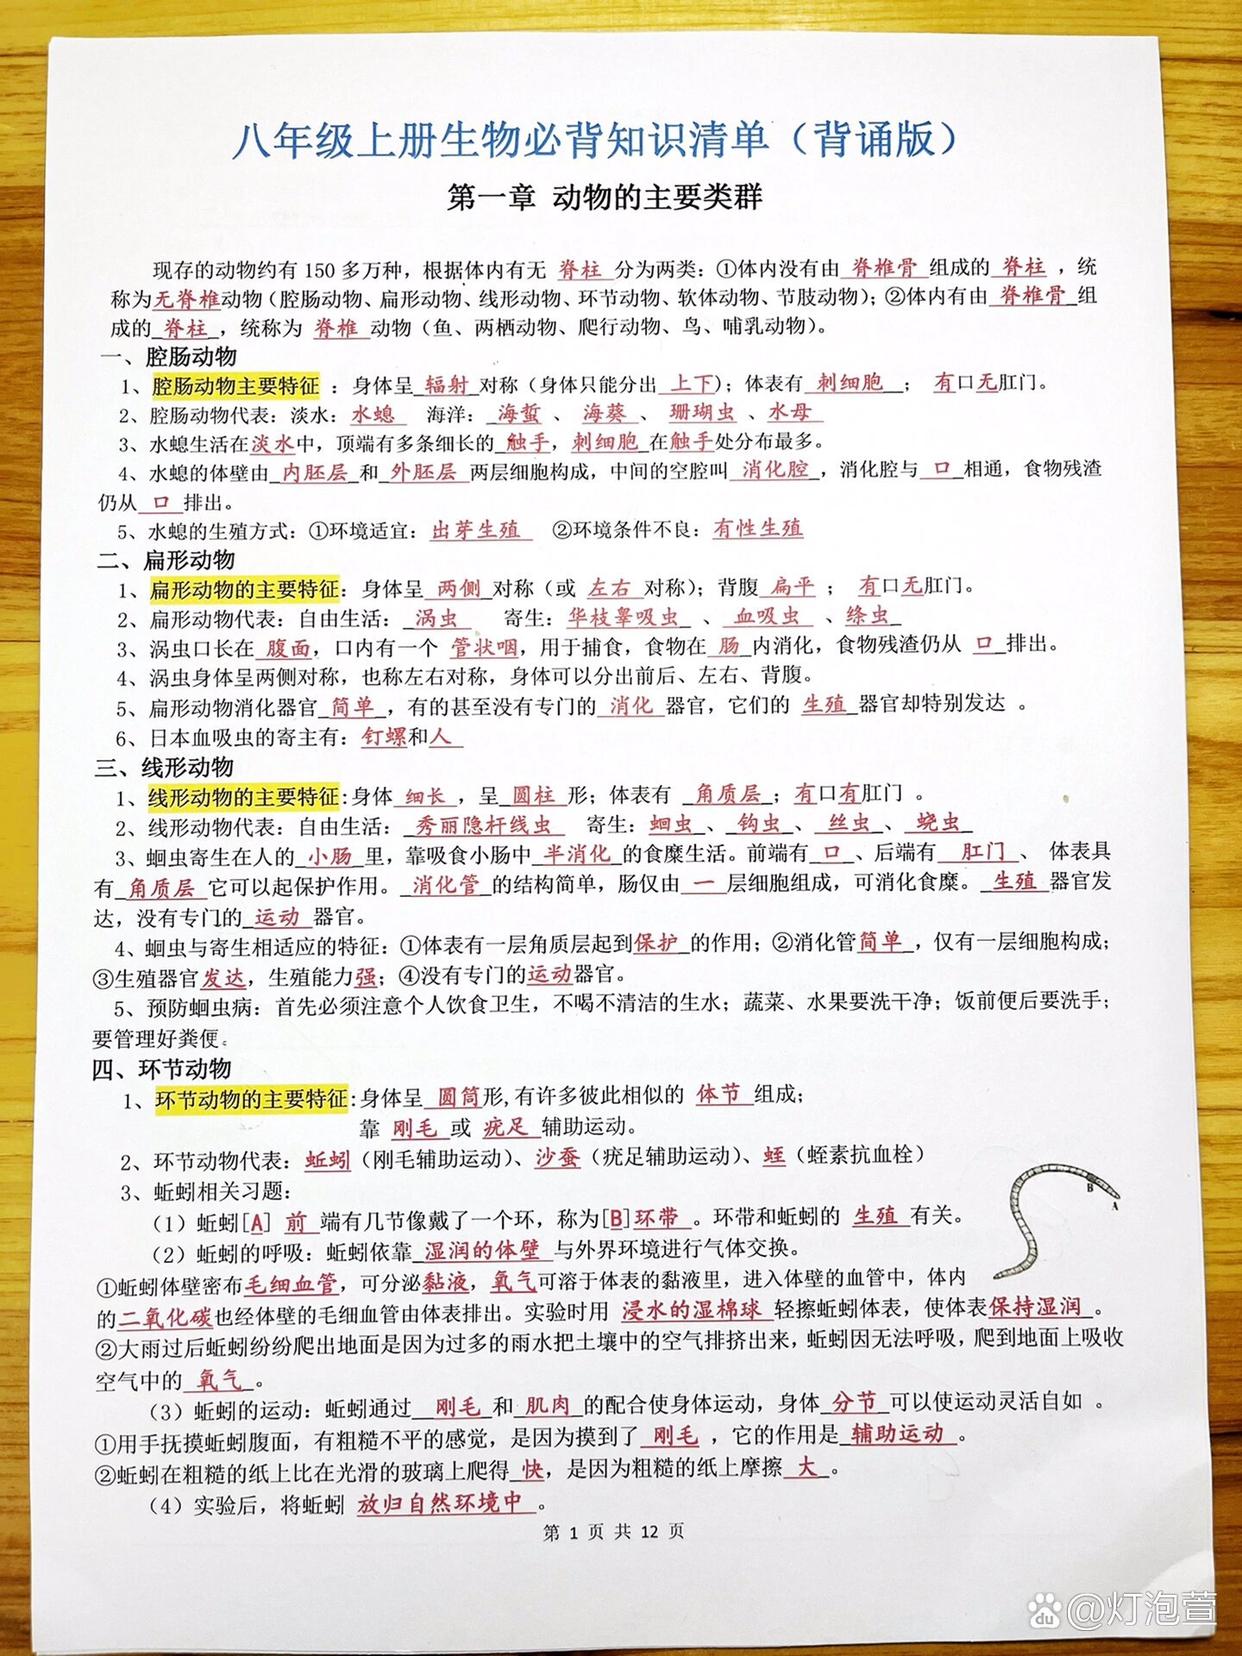 八年级上册生物必背知识清单（背诵版）
第一章 动物的主要类群
现存的动物约有 150 多万种，根据体内有无 脊柱 分为两类：①体内没有由 脊椎骨 组成的 脊柱 ，统
称为无脊椎动物（腔肠动物、扁形动物、线形动物、环节动物、软体动物、节肢动物）；②体内有由 脊椎骨 组
成的 脊柱 ，统称为 脊椎 动物（鱼、两栖动物、爬行动物、鸟、哺乳动物）。
一、腔肠动物
1、腔肠动物主要特征 ：身体呈 辐射 对称（身体只能分出 上下）；体表有 刺细胞 ； 有口无肛门。
2、腔肠动物代表：淡水：水螅 海洋： 海蜇 、 海葵 、 珊瑚虫 、水母
3、水螅生活在淡水中，顶端有多条细长的 触手，刺细胞 在触手处分布最多。
4、水螅的体壁由 内胚层 和 外胚层 两层细胞构成，中间的空腔叫 消化腔 ，消化腔与 口 相通，食物残渣
仍从 口 排出。
5、水螅的生殖方式：①环境适宜：出芽生殖 ②环境条件不良：有性生殖
二、扁形动物
1、扁形动物的主要特征：身体呈 两侧 对称（或 左右 对称）；背腹 扁平 ； 有口无肛门。
2、扁形动物代表：自由生活： 涡虫 寄生：华枝睾吸虫 、 血吸虫 、绦虫
3、涡虫口长在 腹面，口内有一个 管状咽，用于捕食，食物在 肠 内消化，食物残渣仍从 口 排出。
4、涡虫身体呈两侧对称，也称左右对称，身体可以分出前后、左右、背腹。
5、扁形动物消化器官 简单 ，有的甚至没有专门的 消化 器官，它们的 生殖 器官却特别发达 。
6、日本血吸虫的寄主有：钉螺和人
三、线形动物
1、线形动物的主要特征：身体 细长 ，呈 圆柱 形；体表有 角质层 ；有口有肛门 。
2、线形动物代表：自由生活： 秀丽隐杆线虫 寄生：蛔虫 、 钩虫 、 丝虫 、 蛲虫
3、蛔虫寄生在人的 小肠 里，靠吸食小肠中 半消化 的食糜生活。前端有 口 、后端有 肛门 、 体表具
有 角质层 它可以起保护作用。 消化管 的结构简单，肠仅由 一 层细胞组成，可消化食糜。 生殖 器官发
达，没有专门的 运动 器官。
4、蛔虫与寄生相适应的特征：①体表有一层角质层起到保护 的作用；②消化管简单 ，仅有一层细胞构成；
③生殖器官发达，生殖能力强；④没有专门的运动器官。
5、预防蛔虫病：首先必须注意个人饮食卫生，不喝不清洁的生水；蔬菜、水果要洗干净；饭前便后要洗手；
要管理好粪便。
四、环节动物
1、环节动物的主要特征：身体呈 圆筒形，有许多彼此相似的 体节 组成；
靠 刚毛 或 疣足 辅助运动。
2、环节动物代表：蚯蚓（刚毛辅助运动）、沙蚕（疣足辅助运动）、蛭（蛭素抗血栓）
3、蚯蚓相关习题：
（1）蚯蚓[A] 前 端有几节像戴了一个环，称为[B]环带 。环带和蚯蚓的 生殖 有关。
B
A
（2）蚯蚓的呼吸：蚯蚓依靠 湿润的体壁 与外界环境进行气体交换。
①蚯蚓体壁密布毛细血管，可分泌黏液，氧气可溶于体表的黏液里，进入体壁的血管中，体内
的二氧化碳也经体壁的毛细血管由体表排出。实验时用 浸水的湿棉球 轻擦蚯蚓体表，使体表保持湿润 。
②大雨过后蚯蚓纷纷爬出地面是因为过多的雨水把土壤中的空气排挤出来，蚯蚓因无法呼吸，爬到地面上吸收
空气中的 氧气 。
（3）蚯蚓的运动：蚯蚓通过 刚毛 和 肌肉 的配合使身体运动，身体 分节 可以使运动灵活自如 。
①用手抚摸蚯蚓腹面，有粗糙不平的感觉，是因为摸到了 刚毛 ，它的作用是 辅助运动 。
②蚯蚓在粗糙的纸上比在光滑的玻璃上爬得 快，是因为粗糙的纸上摩擦 大 。
（4）实验后，将蚯蚓 放归自然环境中 。
第 1 页 共 12 页
du @灯泡萱